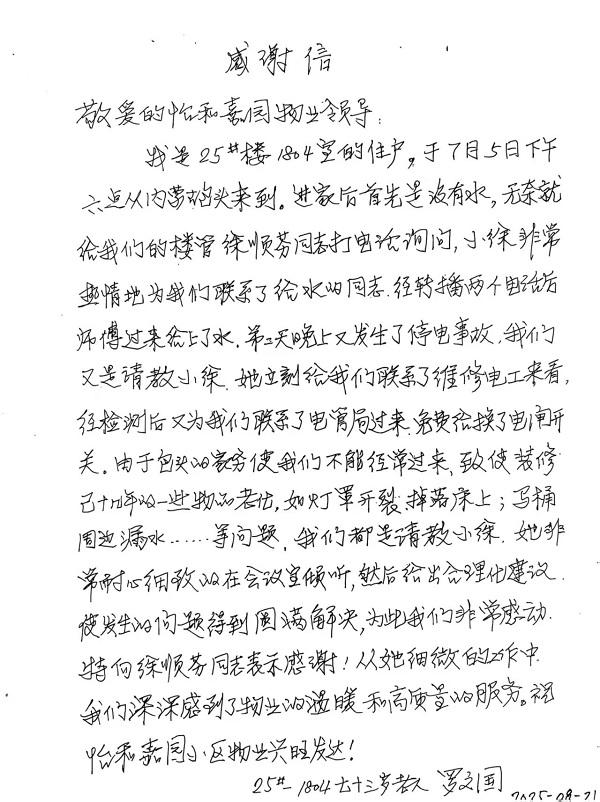 感谢信
敬爱的怡和嘉园物业领导:
我是25#楼1804室的住户,于7月5日下午
六点从内蒙包头来到。进家后首先是没有水,无奈就
给我们的楼管徐顺芬同志打电话询问,小徐非常
热情地为我们联系了给水的同志.经转播两个电话后
师傅过来给上了水.第二天晚上又发生了停电事故,我们
又是请教小徐.她立刻给我们联系了维修电工来看,
经检测后又为我们联系了电管局过来.免费给换了电闸开
关。由于包头的家务使我们不能经常过来,致使装修
已十几年的一些物品老化,如灯罩开裂掉落床上;马桶
周边漏水……等问题,我们都是请教小徐.她非
常耐心细致的在会议室倾听,然后给出合理化建议.
使发生的问题得到圆满解决,为此我们非常感动.
特向徐顺芬同志表示感谢!从她细微的工作中
我们深深感到了物业的温暖和高质量的服务。祝
怡和嘉园小区物业兴旺发达!
25#-1804七十三岁老人 罗文国
2025-08-21